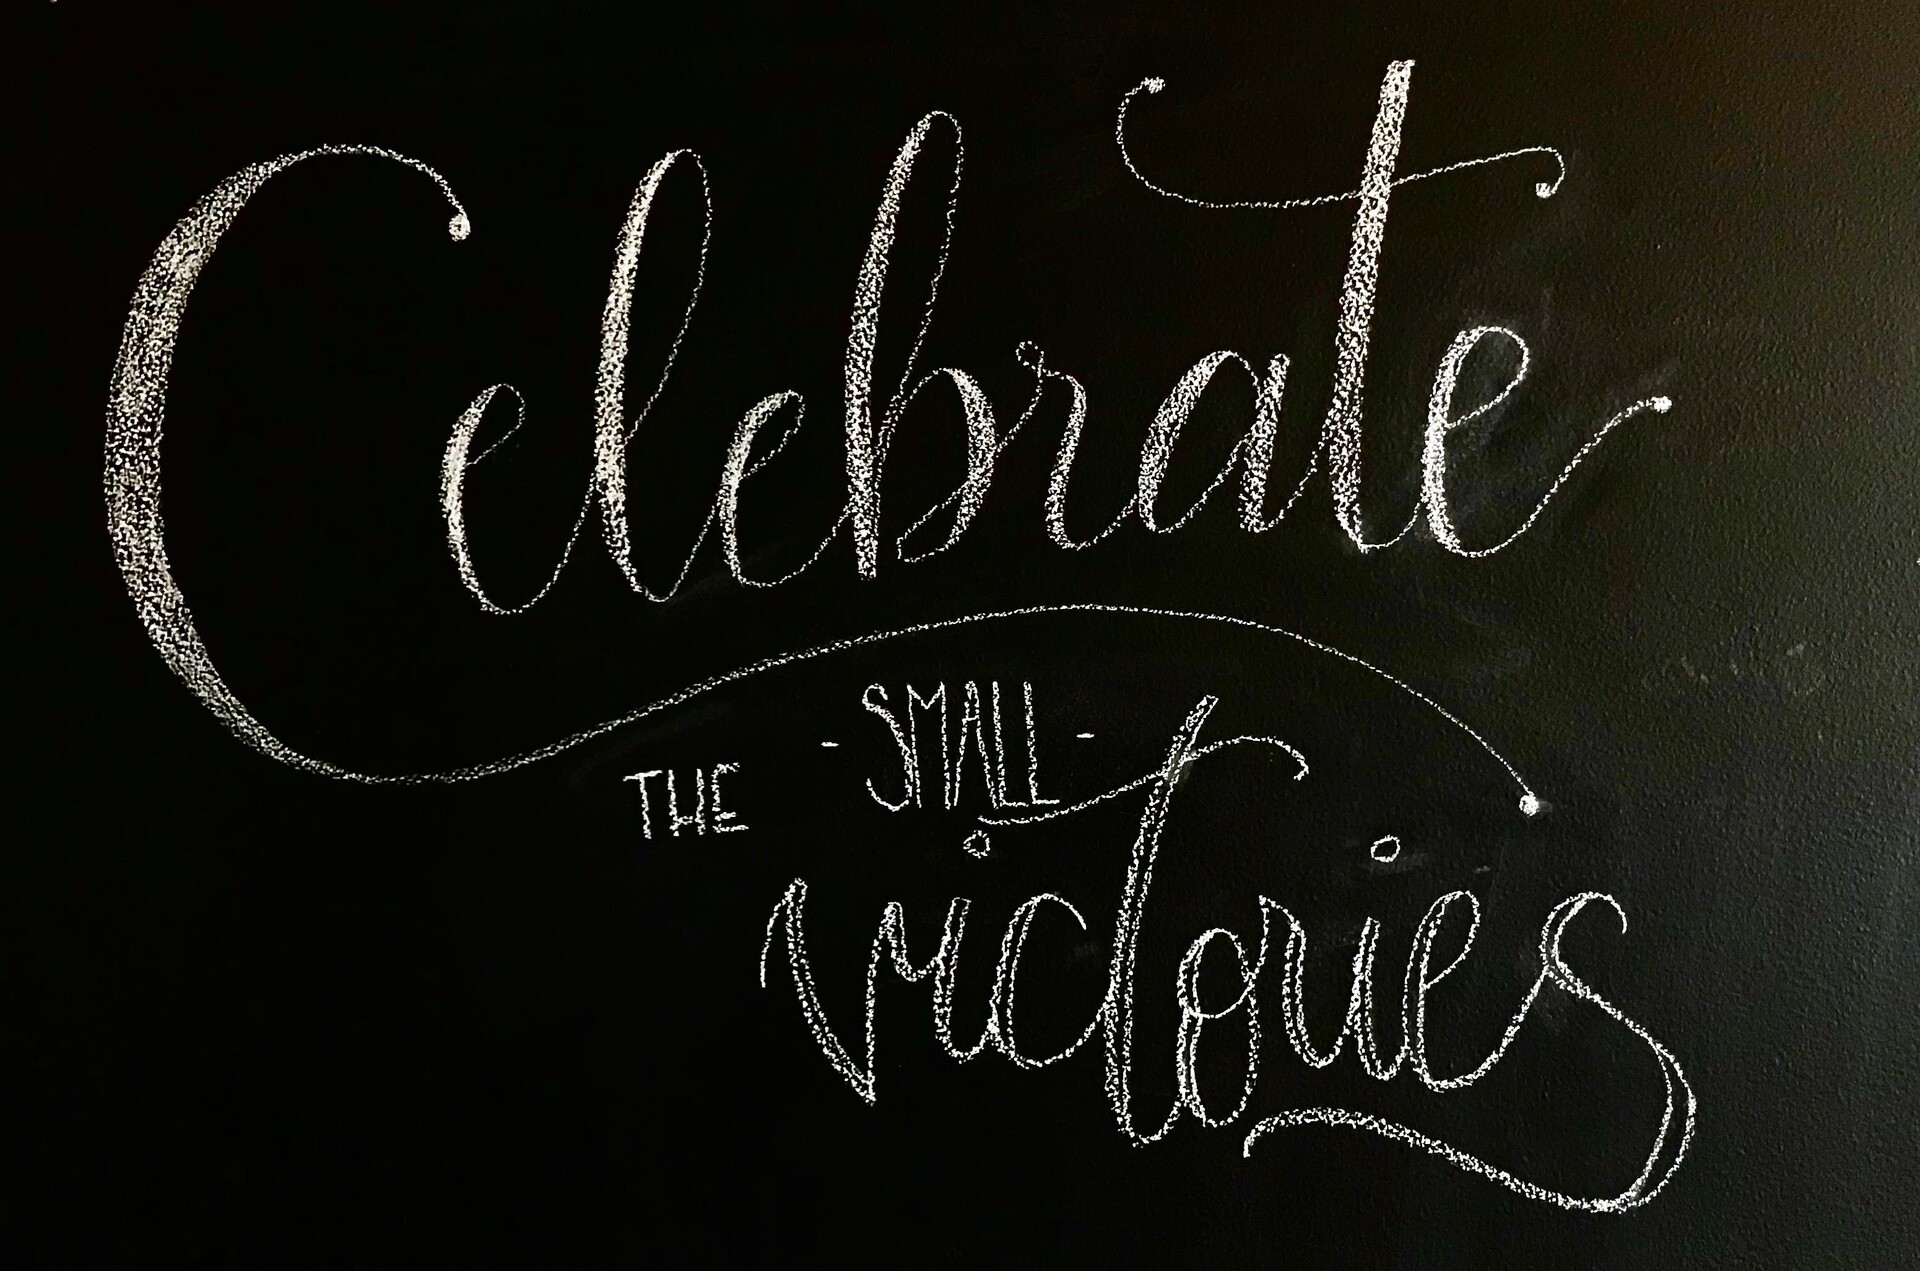 Celebrate
THE - SMALL -
victories